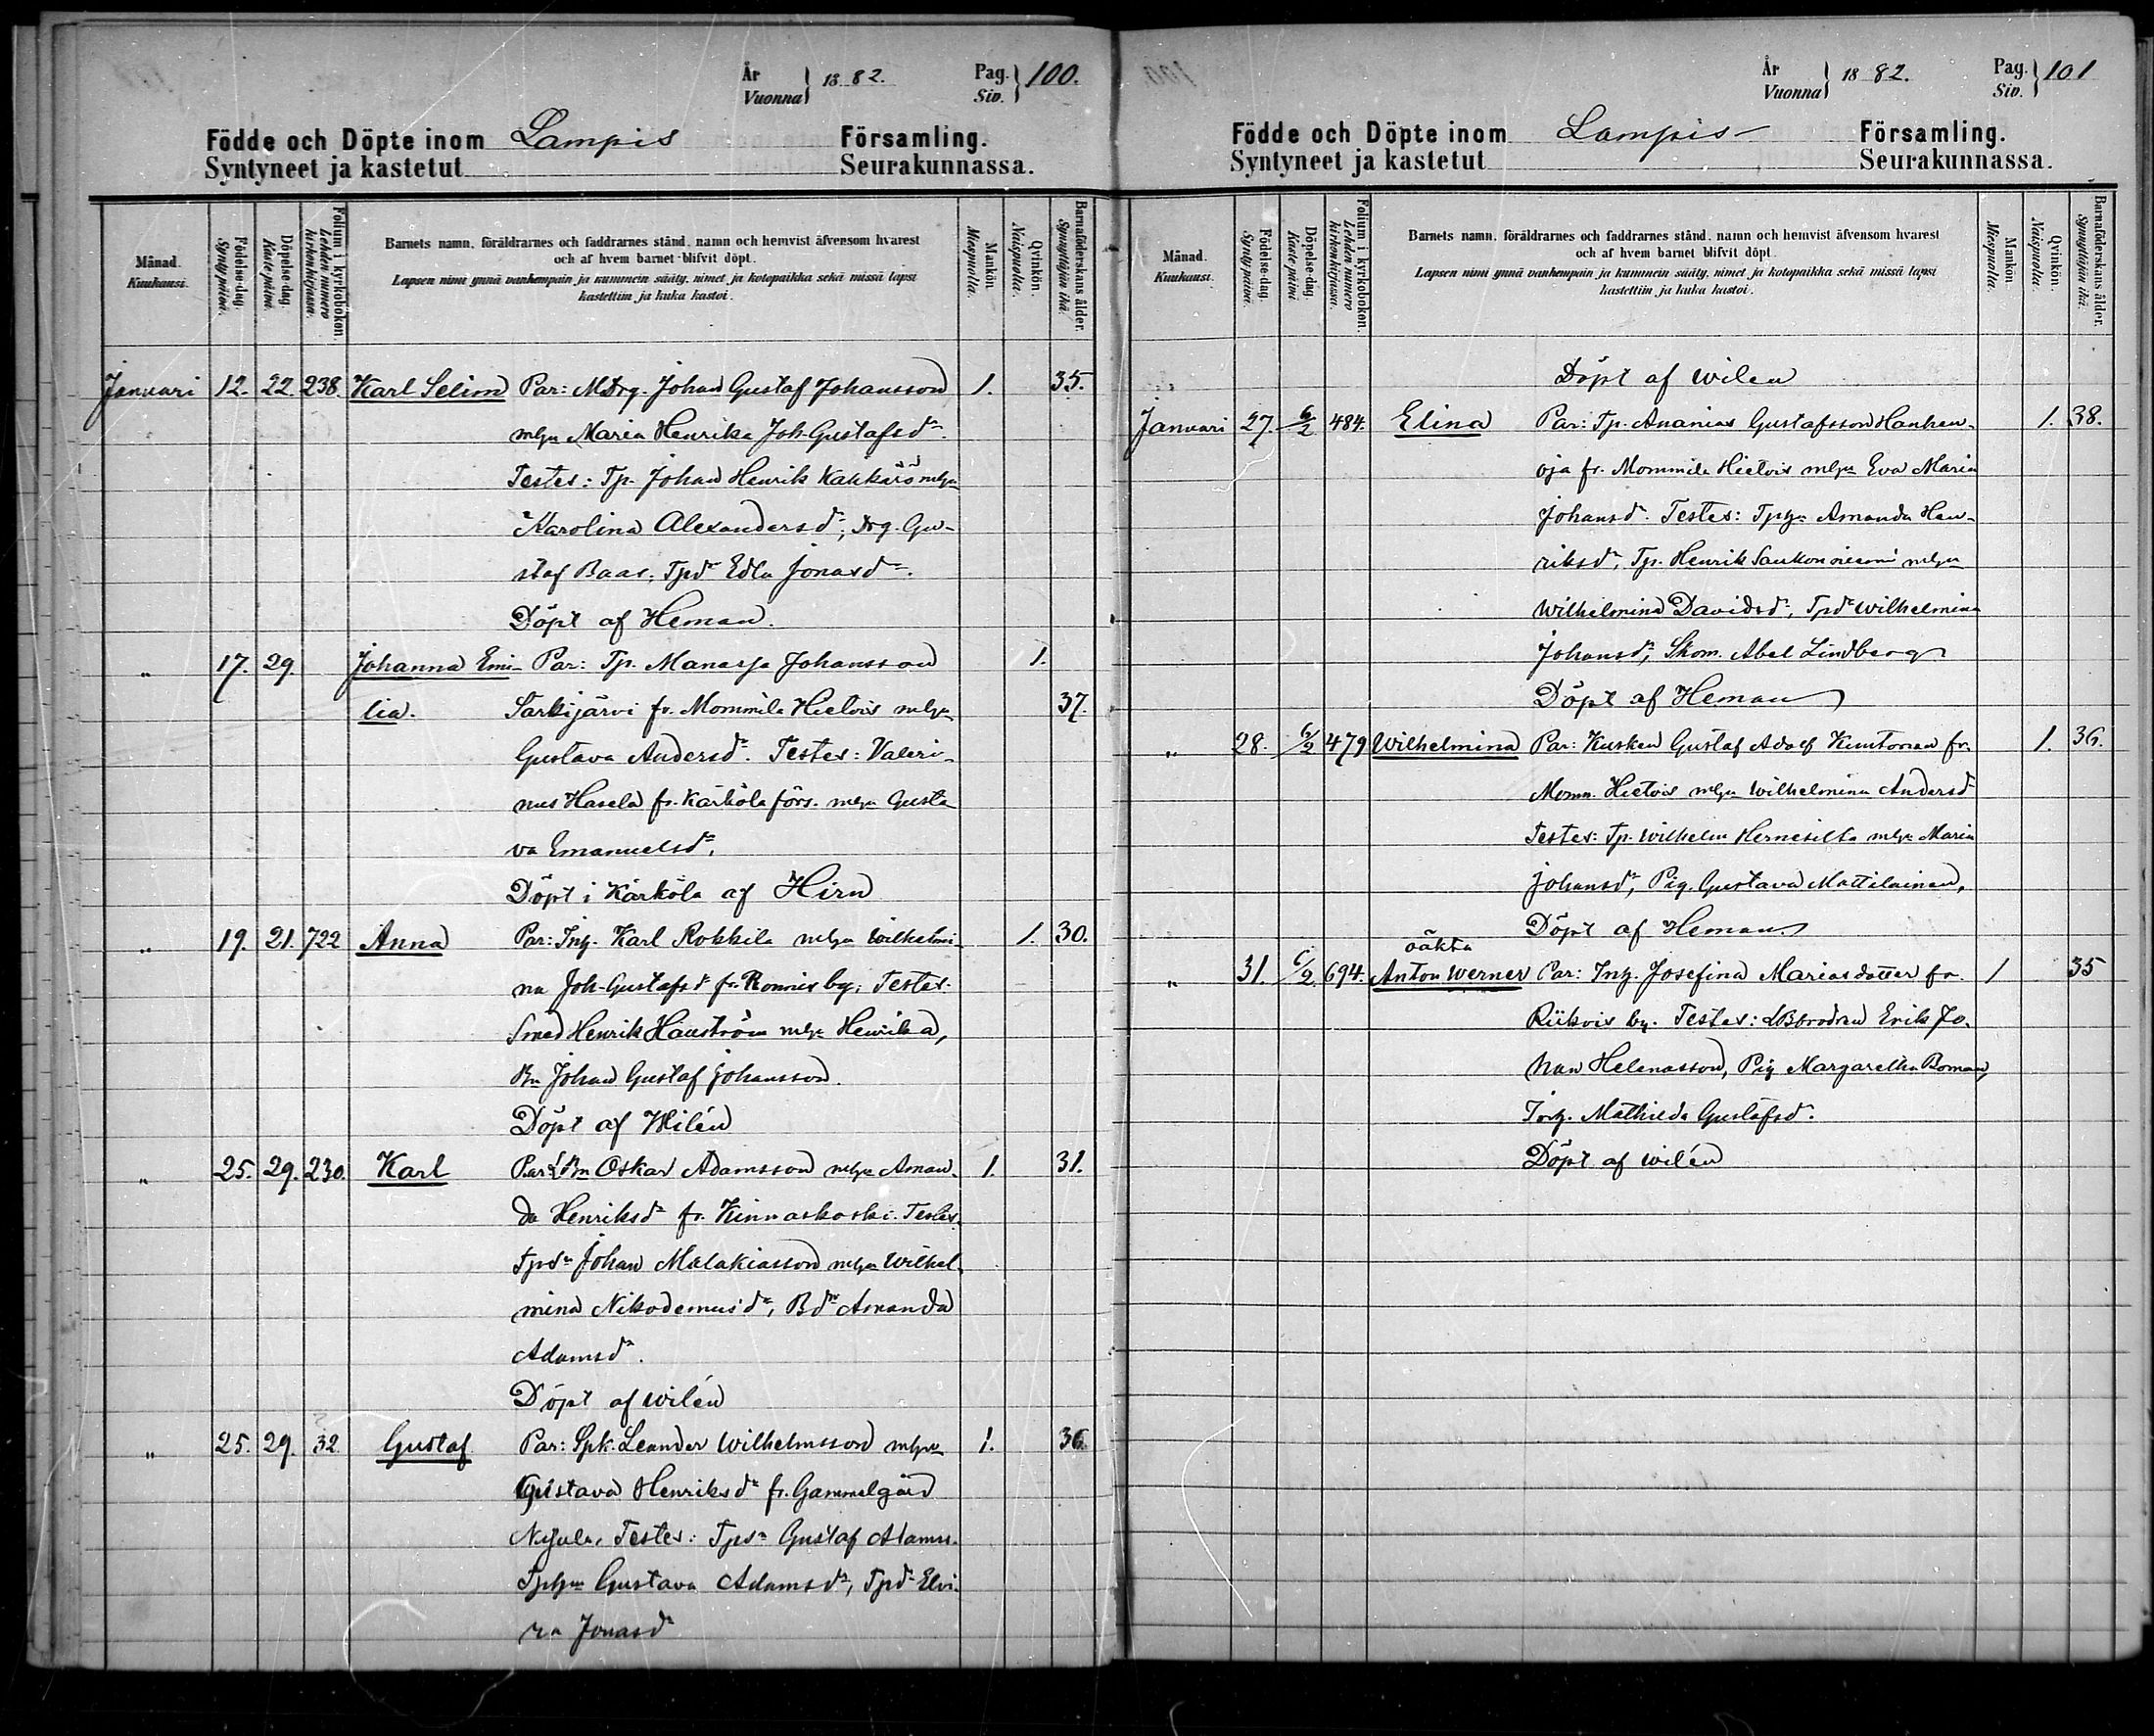 År
Vuonna } 1882. Pag.
Siv. } 100.
Födde och Döpte inom Lampis Församling.
Syntyneet ja kastetut Seurakunnassa.
Månad.
Kuukausi.
Födelse-dag.
Syntypäivä.
Döpelse-dag.
Kastepäivä.
Folium i kyrkobokon.
Lehden numero
kirkonkirjassa.
Barnets namn, föräldrarnes och faddrarnes stånd, namn och hemvist äfvensom hvarest
och af hvem barnet blifvit döpt.
Lapsen nimi ynnä vanhempain ja kummein sääty, nimet ja kotopaikka sekä missä lapsi
kastettiin ja kuka kastoi.
Mankön.
Miespuolia.
Qvinkön.
Naispuolia.
Barnaföderskans ålder.
Synnyttäjän ikä.
Januari 12. 22. 238. Karl Selim Par: MDrg. Johan Gustaf Johansson 1. 35.
mhu Maria Henrika Joh. Gustafsdr.
Testes: Tp. Johan Henrik mhu
Karolina Alexandersdr, Drg. Gu-
staf Baas, Tpdr Edla Jonasdr.
Döpt af Heman.
" 17. 29. Johanna Emi- Par: Tp. Manasse Johansson 1.
lia. Särkijärvi fr. Mommila Hietois mhu 37.
Gustava Andersdr. Testes: Valeri-
nus Hasela fr. Kärkölä förs. mhu Gusta
va Emanuelsdr.
Döpt i Kärkölä af Hirn
" 19. 21. 722 Anna Par: Inh. Karl Rokkila mhu Wilhelmi- 1. 30.
na Joh. Gustafsdr fr. Ronnis by; Testes.
Smed Henrik mhu Henrika,
Bn Johan Gustaf Johansson.
Döpt af Wilén
" 25. 29. 230. Karl Par: LBn Oskar Adamsson mhu Aman- 1. 31.
da Henriksdr fr. Kinnaskoski. Testes.
Tpsn Johan Malakiasson mhu Wilhel-
mina Nikodemusdr, Bdr Amanda
Adamsdr.
Döpt af Wilén
" 25. 29. 32 Gustaf Par: Spk. Leander Wilhelmsson mhu 1. 36.
Gustava Henriksdr fr. Gammelgård
Testes: Tpsn Gustaf Adams.
Tphu Gustava Adamsdr, Tpdr Elvi-
ra Jonasdr
År
Vuonna } 1882. Pag.
Siv. } 101
Födde och Döpte inom Lampis Församling.
Syntyneet ja kastetut Seurakunnassa.
Månad.
Kuukausi.
Födelse-dag.
Syntypäivä.
Döpelse-dag.
Kastepäivä.
Folium i kyrkobokon.
Lehden numero
kirkonkirjassa.
Barnets namn, föräldrarnes och faddrarnes stånd, namn och hemvist äfvensom hvarest
och af hvem barnet blifvit döpt.
Lapsen nimi ynnä vanhempain ja kummein sääty, nimet ja kotopaikka sekä missä lapsi
kastettiin ja kuka kastoi.
Mankön.
Miespuolia.
Qvinkön.
Naispuolia.
Barnaföderskans ålder.
Synnyttäjän ikä.
Döpt af Wilen
Januari 27. 6/2 484. Elina Par: Tp. Ananias Gustafsson Hanhen- 1. 38.
oja fr. Mommila Hietois mhu Eva Maria
Johansdr. Testes: Tphu Amanda Hen-
riksdr, Tp. Henrik mhu
Wilhelmina Davidsdr, Tpdr Wilhelmina
Johansdr, Skom. Abel Lindberg
Döpt af Heman
" 28. 6/2 479 Wilhelmina Par: Kusken Gustaf Adolf Kuntonen fr. 1. 36.
Momm. Hietois mhu Wilhelmina Andersdr
Testes: Tp. Wilhelm Hernesilta mhu Maria
Johansdr, Pig. Gustava Mattilainen,
Döpt af Heman.
oäkta
" 31. 6/2 694. Anton Werner Par: Inh. Josefina Mariasdotter fr. 1 35
Riikois by. Testes: LBbrodren Erik Jo-
han Helenasson, Pig Margaretha Boman,
Inh. Mathilda Gustafsdr.
Döpt af Wilén